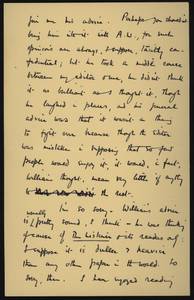 give me his advice. Perhaps you should
bring him into it. Will A.W., for such
opinions are always, I suppose, strictly con-
fidential; but he took a middle course
between my editor & me, he did not think
it as brilliant as I thought it, though
he laughed in places, and his general
advice was that it wasn't a thing
to fight over because though the Editor
was mistaken in supposing that so few
people would enjoy it, it would, in fact,
William thought, mean very little if anything
to the rest.
I'm so sorry. William's advice
is usually pretty sound I think – he was thinking
of course of The Listener & its readers as
I suppose it is duller & heavier
than any other paper in the world. So
sorry, then. I have enjoyed reading